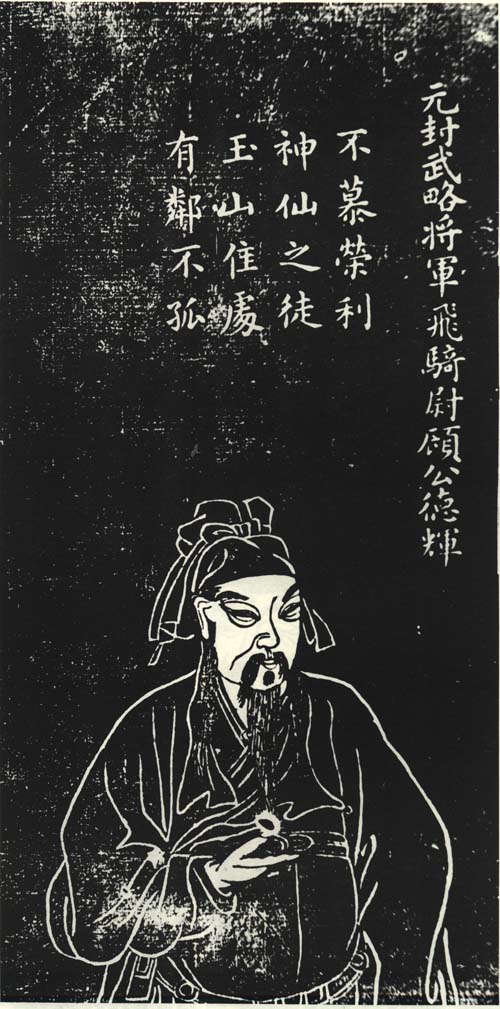 元封武略將軍飛騎尉顧公德輝
不慕榮利
神仙之徒
玉山住處
有鄰不孤